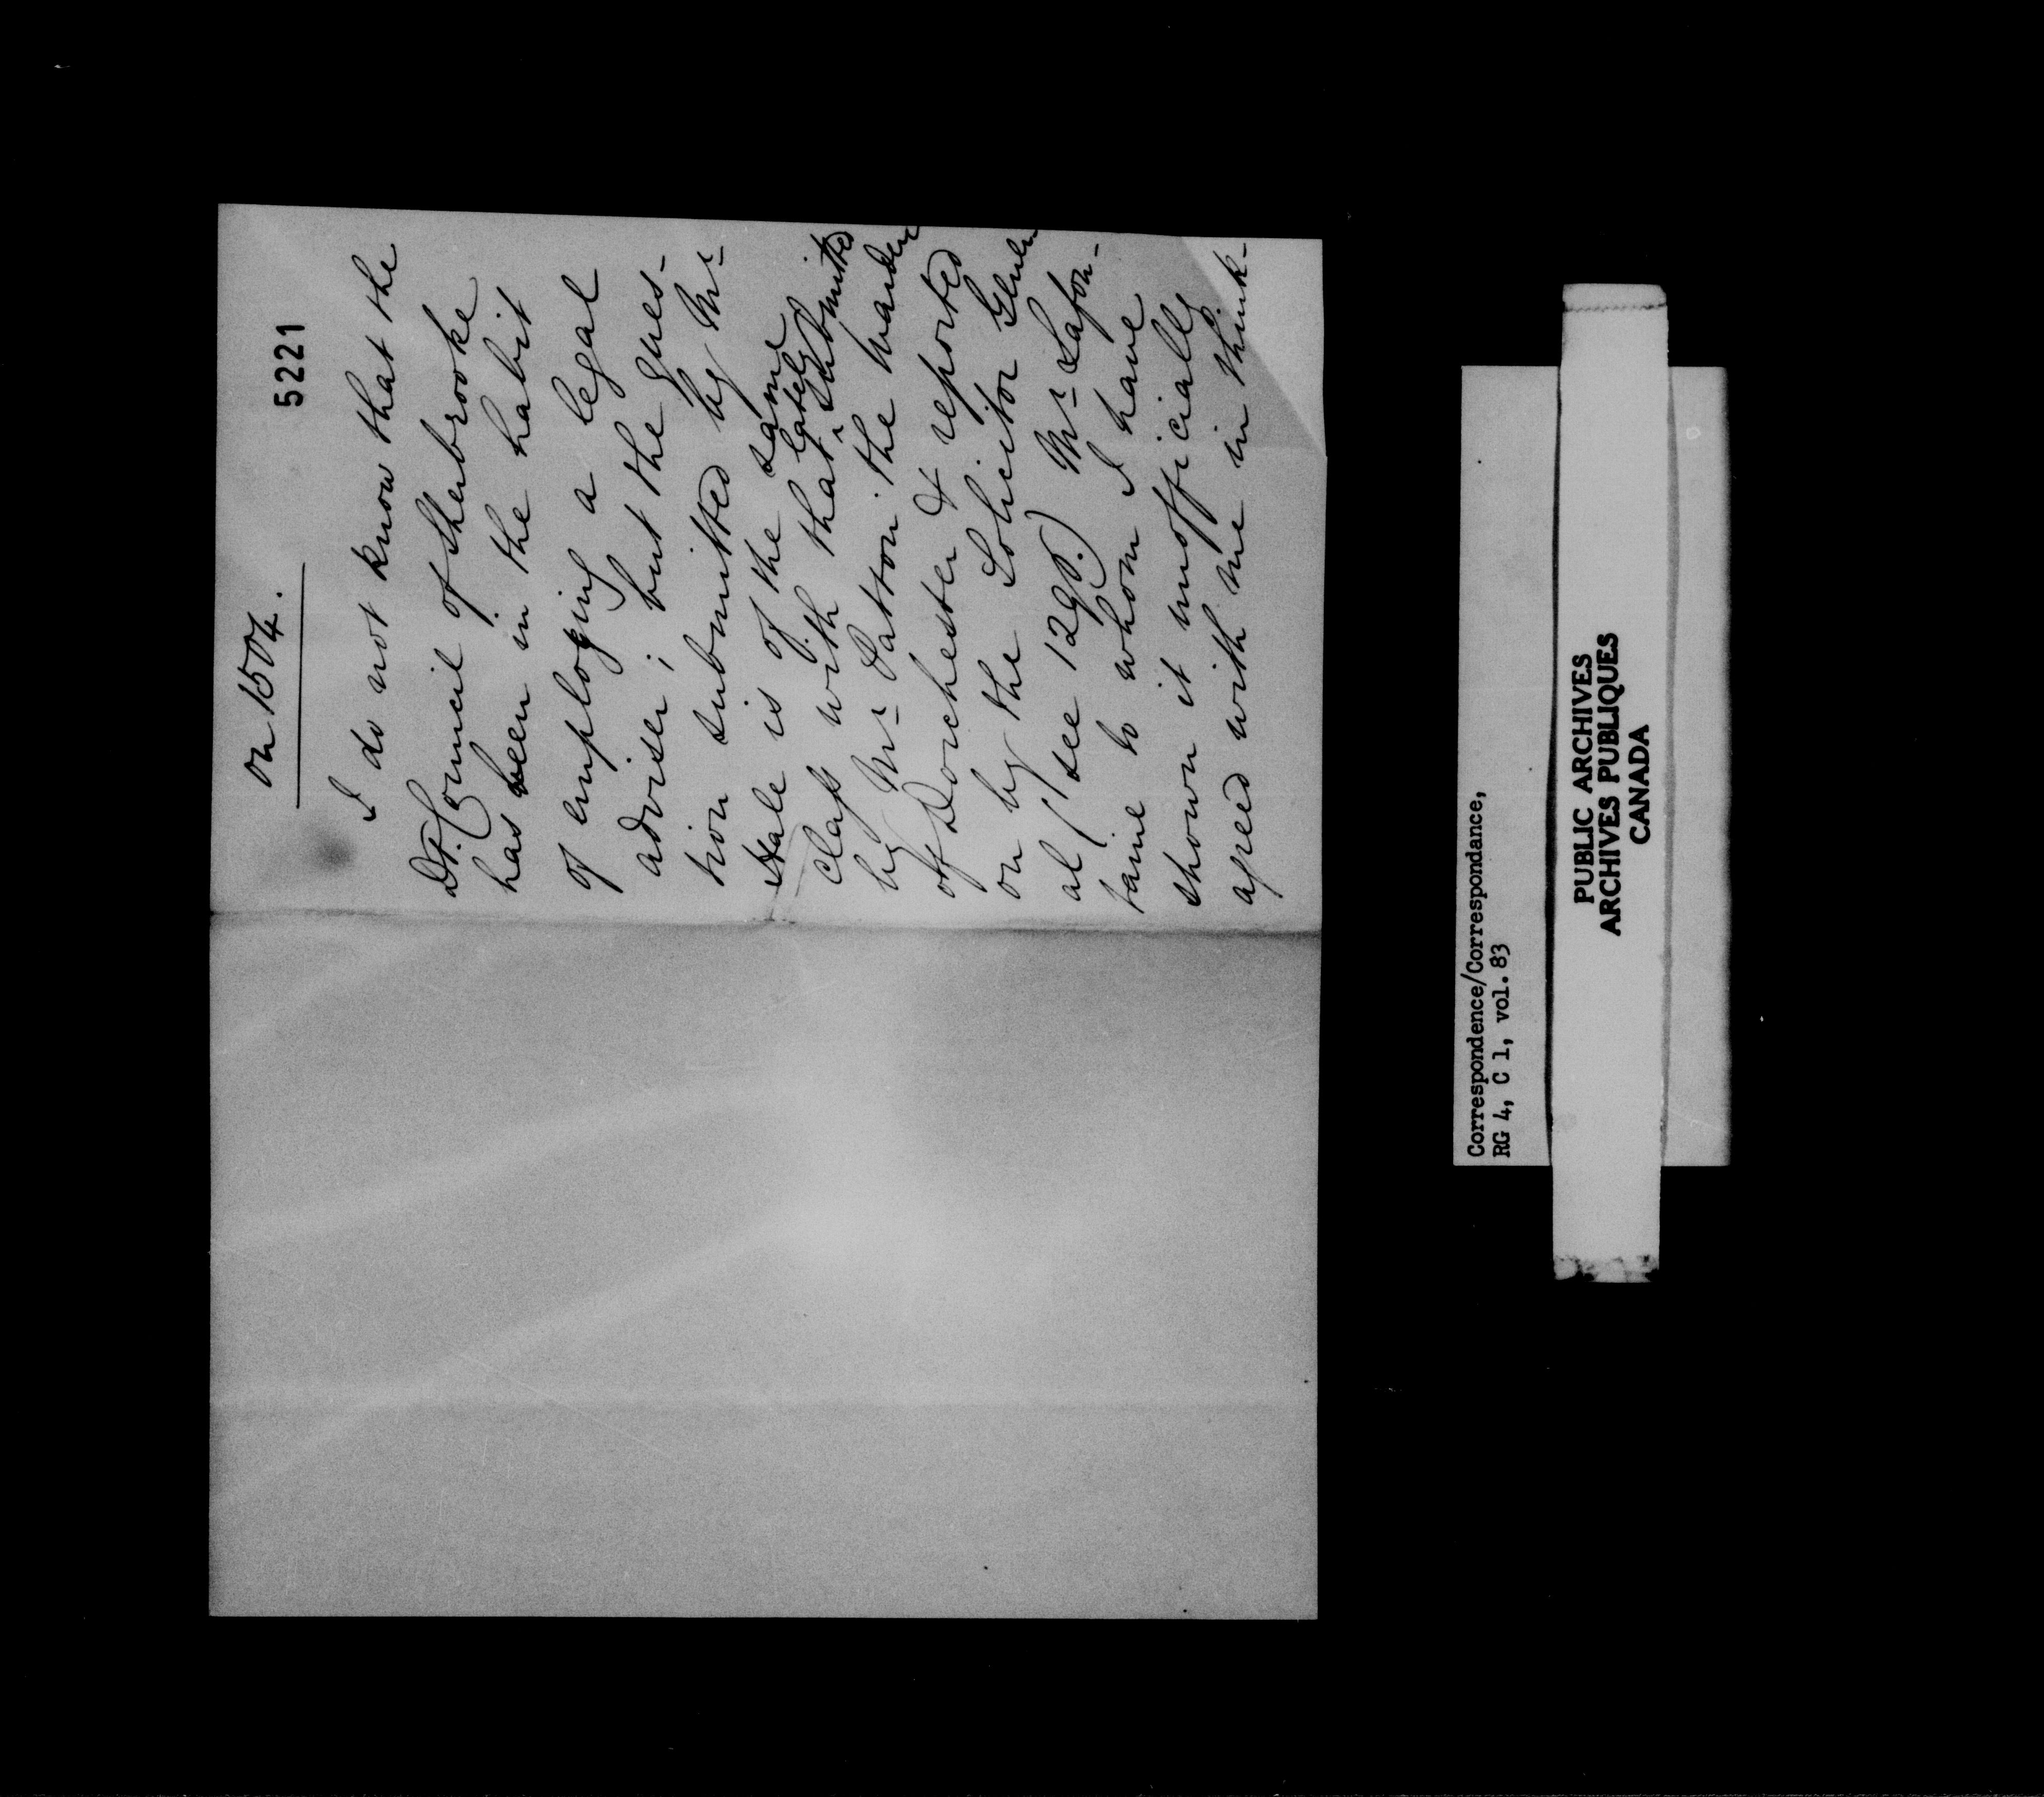 on 1504.
5221
I do not know that the
Dt. Council of Sherbrooke
has been in the habit
of employing a legal
adviser; but the ques-
tion submitted by Mr
Hale is of the same
class with that ^ lately submitted
by Mr Patton the Warden
of Dorchester & reported
on by the Solicitor Gener
al (see 1298.) Mr Lafon-
taine to whom I have
shown it unofficially
agreed with me in think-
Correspondence/Correspondance,
RG 4, C 1, vol. 83
PUBLIC ARCHIVES
ARCHIVES PUBLIQUES
CANADA